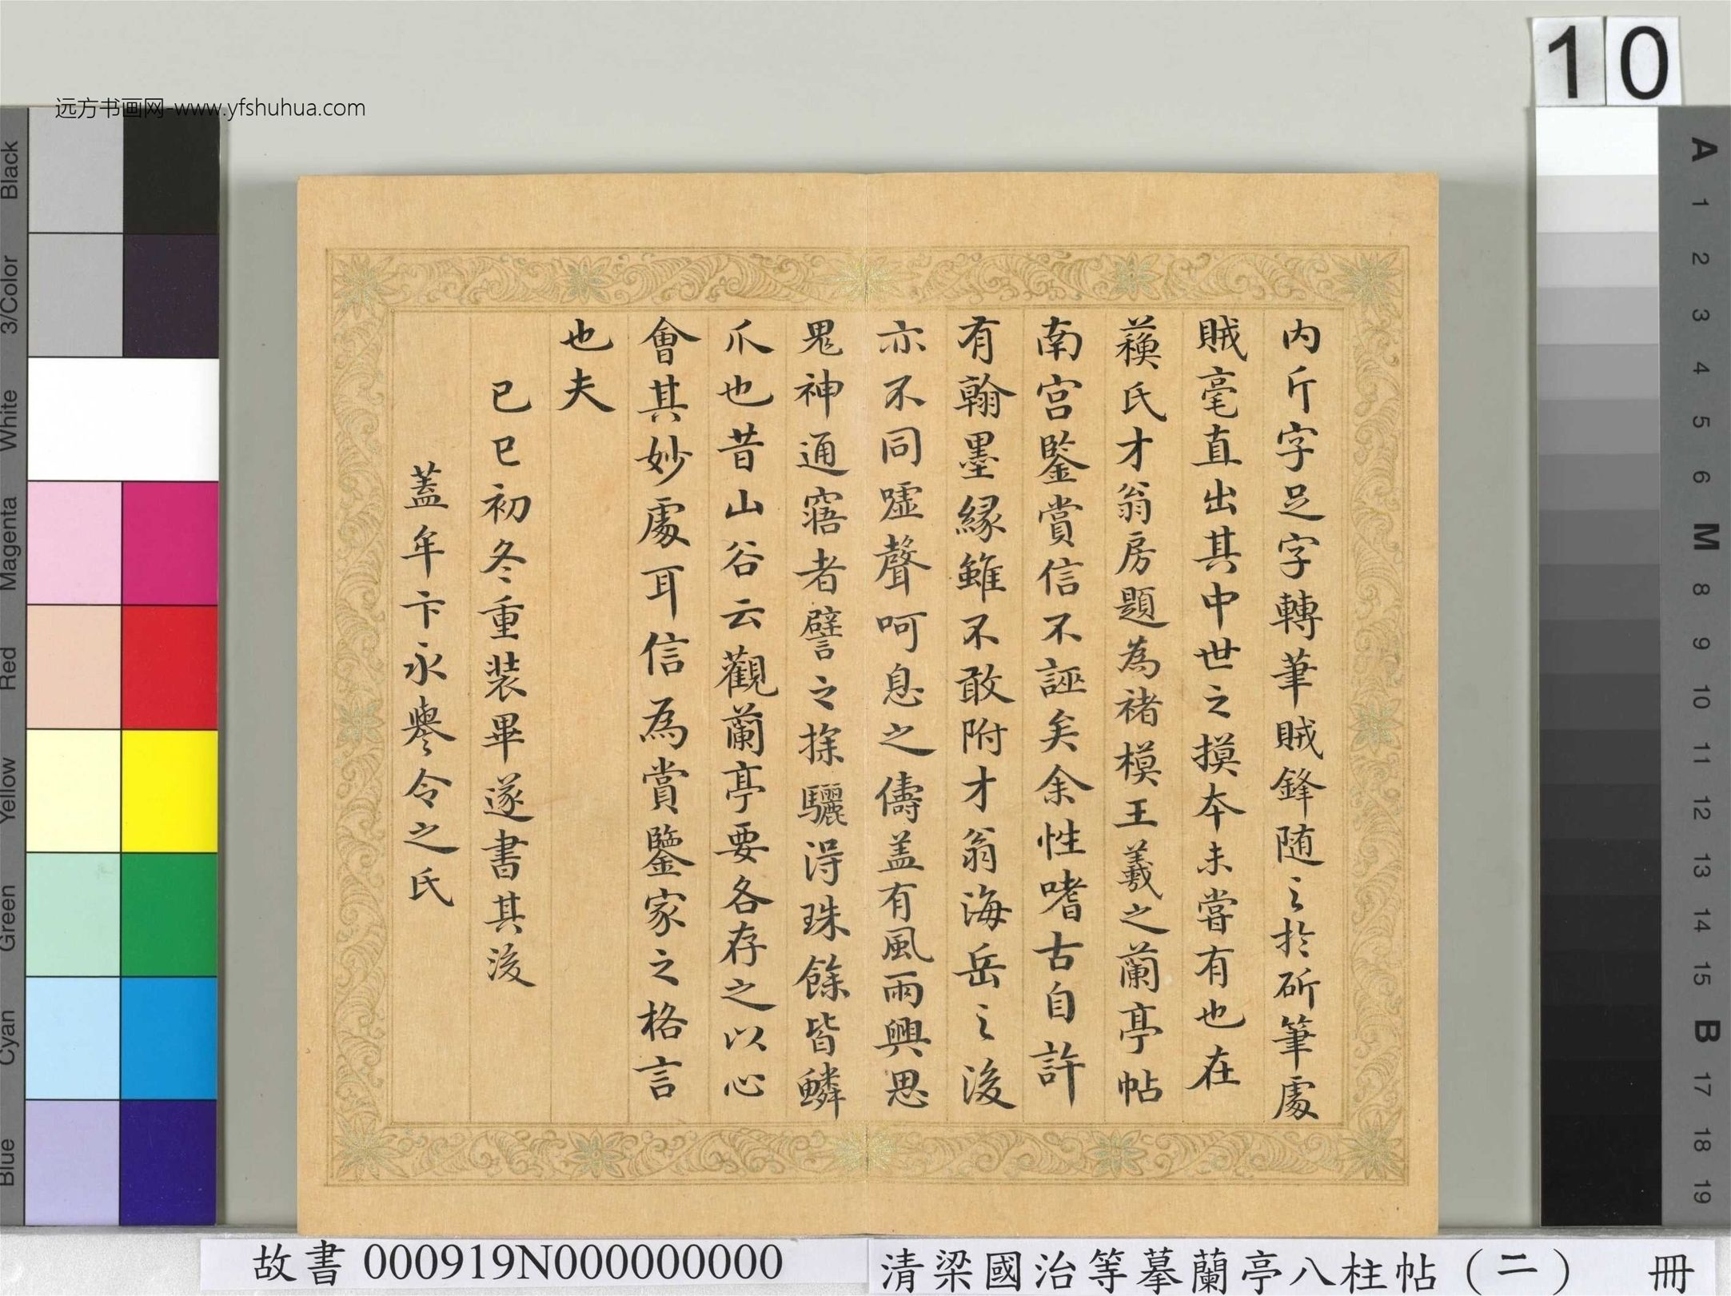 远方书画网-www.yfshuhua.com
10
内斤字足字轉筆賊鋒随之於斫筆處
賊毫直出其中世之摸本未嘗有也在
蘓氏才翁房題為禇模王羲之蘭亭帖
南宫鑒賞信不誣矣余性嗜古自許
有翰墨縁雖不敢附才翁海岳之後
亦不同嘘聲呵息之儔盖有風雨興思
鬼神通寤者譬之探驪得珠餘皆鱗
爪也昔山谷云觀蘭亭要各存之以心
會其妙處耳信為賞鑒家之格言
也夫
己巳初冬重装畢遂書其後
蓋牟卞永譽令之氏
Black
3/Color
White
Magenta
Red
Yellow
Green
Cyan
Blue
A 1 2 3 4 5 6 M 8 9 10 11 12 13 14 15 B 17 18 19
故書 000919N000000000
清梁國治等摹蘭亭八柱帖（二） 冊